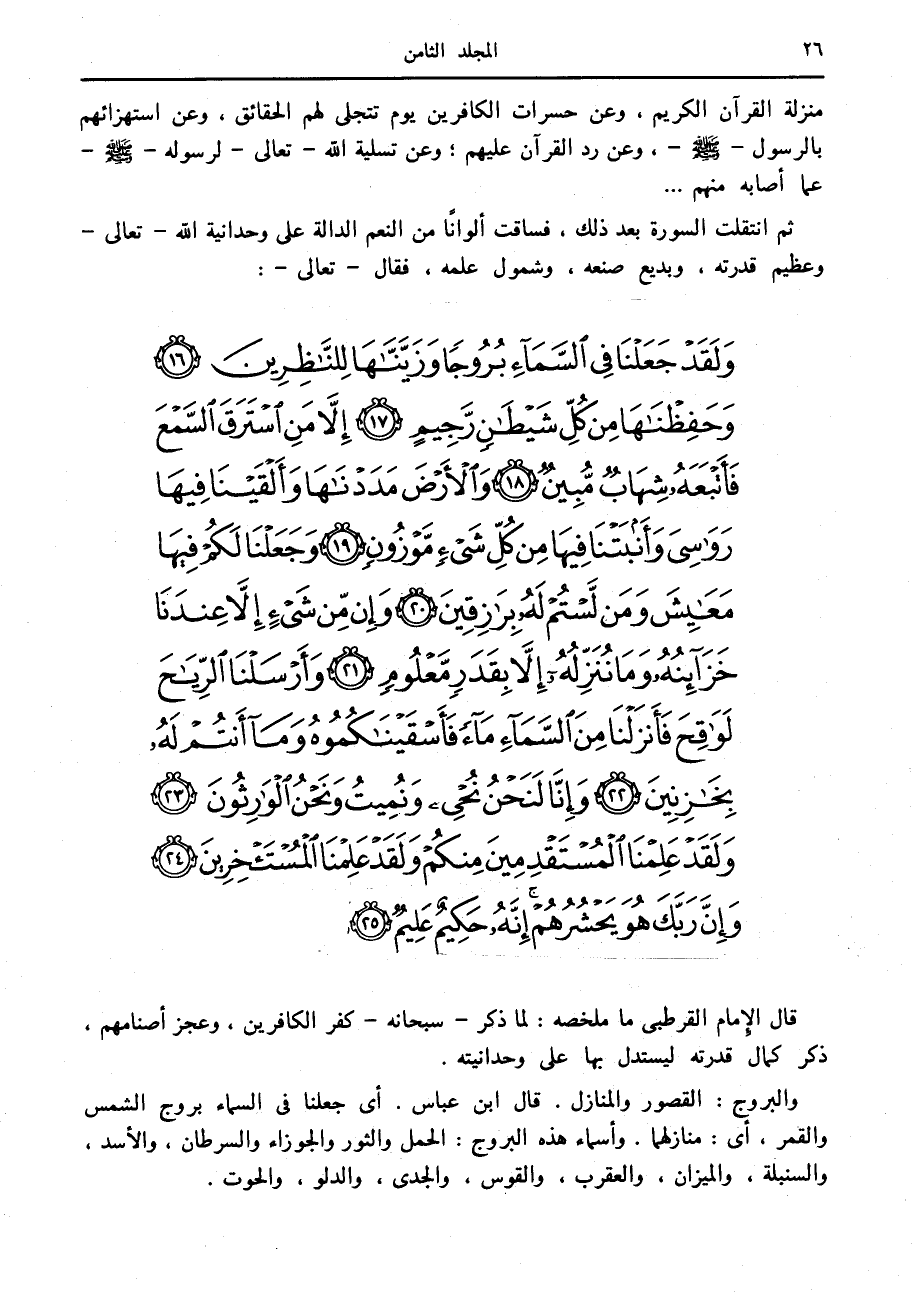 ٢٦ المجلد الثامن
منزلة القرآن الكريم ، وعن حسرات الكافرين يوم تتجلى لهم الحقائق ، وعن استهزائهم
بالرسول – ﷺ – ، وعن رد القرآن عليهم ؛ وعن تسلية الله – تعالى – لرسوله – ﷺ –
عما أصابه منهم ...
ثم انتقلت السورة بعد ذلك ، فساقت ألوانًا من النعم الدالة على وحدانية الله – تعالى –
وعظيم قدرته ، وبديع صنعه ، وشمول علمه ، فقال – تعالى – :
وَلَقَدْ جَعَلْنَا فِى ٱلسَّمَآءِ بُرُوجًا وَزَيَّنَّٰهَا لِلنَّٰظِرِينَ ١٦
وَحَفِظْنَٰهَا مِن كُلِّ شَيْطَٰنٍ رَّجِيمٍ ١٧ إِلَّا مَنِ ٱسْتَرَقَ ٱلسَّمْعَ
فَأَتْبَعَهُۥ شِهَابٌ مُّبِينٌ ١٨ وَٱلْأَرْضَ مَدَدْنَٰهَا وَأَلْقَيْنَا فِيهَا
رَوَٰسِىَ وَأَنۢبَتْنَا فِيهَا مِن كُلِّ شَىْءٍ مَّوْزُونٍ ١٩ وَجَعَلْنَا لَكُمْ فِيهَا
مَعَٰيِشَ وَمَن لَّسْتُمْ لَهُۥ بِرَٰزِقِينَ ٢٠ وَإِن مِّن شَىْءٍ إِلَّا عِندَنَا
خَزَآئِنُهُۥ وَمَا نُنَزِّلُهُۥٓ إِلَّا بِقَدَرٍ مَّعْلُومٍ ٢١ وَأَرْسَلْنَا ٱلرِّيَٰحَ
لَوَٰقِحَ فَأَنزَلْنَا مِنَ ٱلسَّمَآءِ مَآءً فَأَسْقَيْنَٰكُمُوهُ وَمَآ أَنتُمْ لَهُۥ
بِخَٰزِنِينَ ٢٢ وَإِنَّا لَنَحْنُ نُحْىِۦ وَنُمِيتُ وَنَحْنُ ٱلْوَٰرِثُونَ ٢٣
وَلَقَدْ عَلِمْنَا ٱلْمُسْتَقْدِمِينَ مِنكُمْ وَلَقَدْ عَلِمْنَا ٱلْمُسْتَـْٔخِرِينَ ٢٤
وَإِنَّ رَبَّكَ هُوَ يَحْشُرُهُمْ ۚ إِنَّهُۥ حَكِيمٌ عَلِيمٌ ٢٥
قال الإمام القرطبى ما ملخصه : لما ذكر – سبحانه – كفر الكافرين ، وعجز أصنامهم ،
ذكر كمال قدرته ليستدل بها على وحدانيته .
والبروج : القصور والمنازل . قال ابن عباس . أى جعلنا فى السماء بروج الشمس
والقمر ، أى : منازلهما . وأسماء هذه البروج : الحمل والثور والجوزاء والسرطان ، والأسد ،
والسنبلة ، والميزان ، والعقرب ، والقوس ، والجدى ، والدلو ، والحوت .